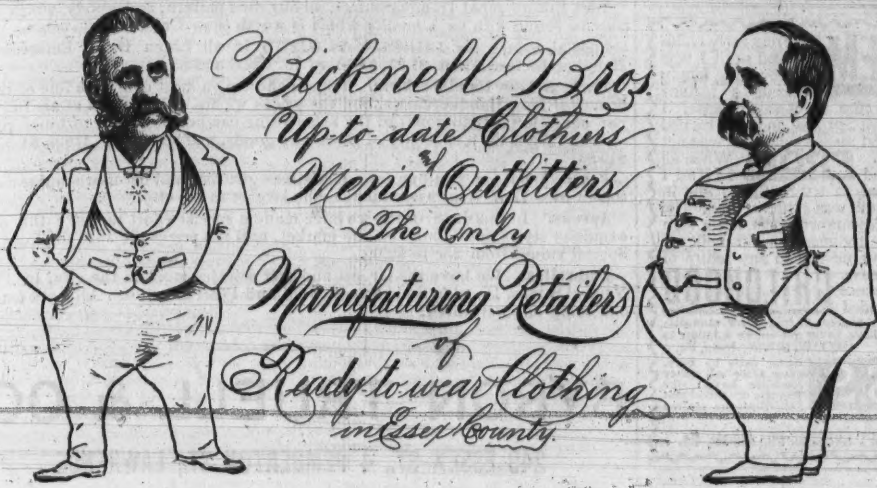 Bicknell Bros.
Up-to-date Clothiers
and
Men's Outfitters
The Only
Manufacturing Retailers
of
Ready-to-wear Clothing
in Essex County.